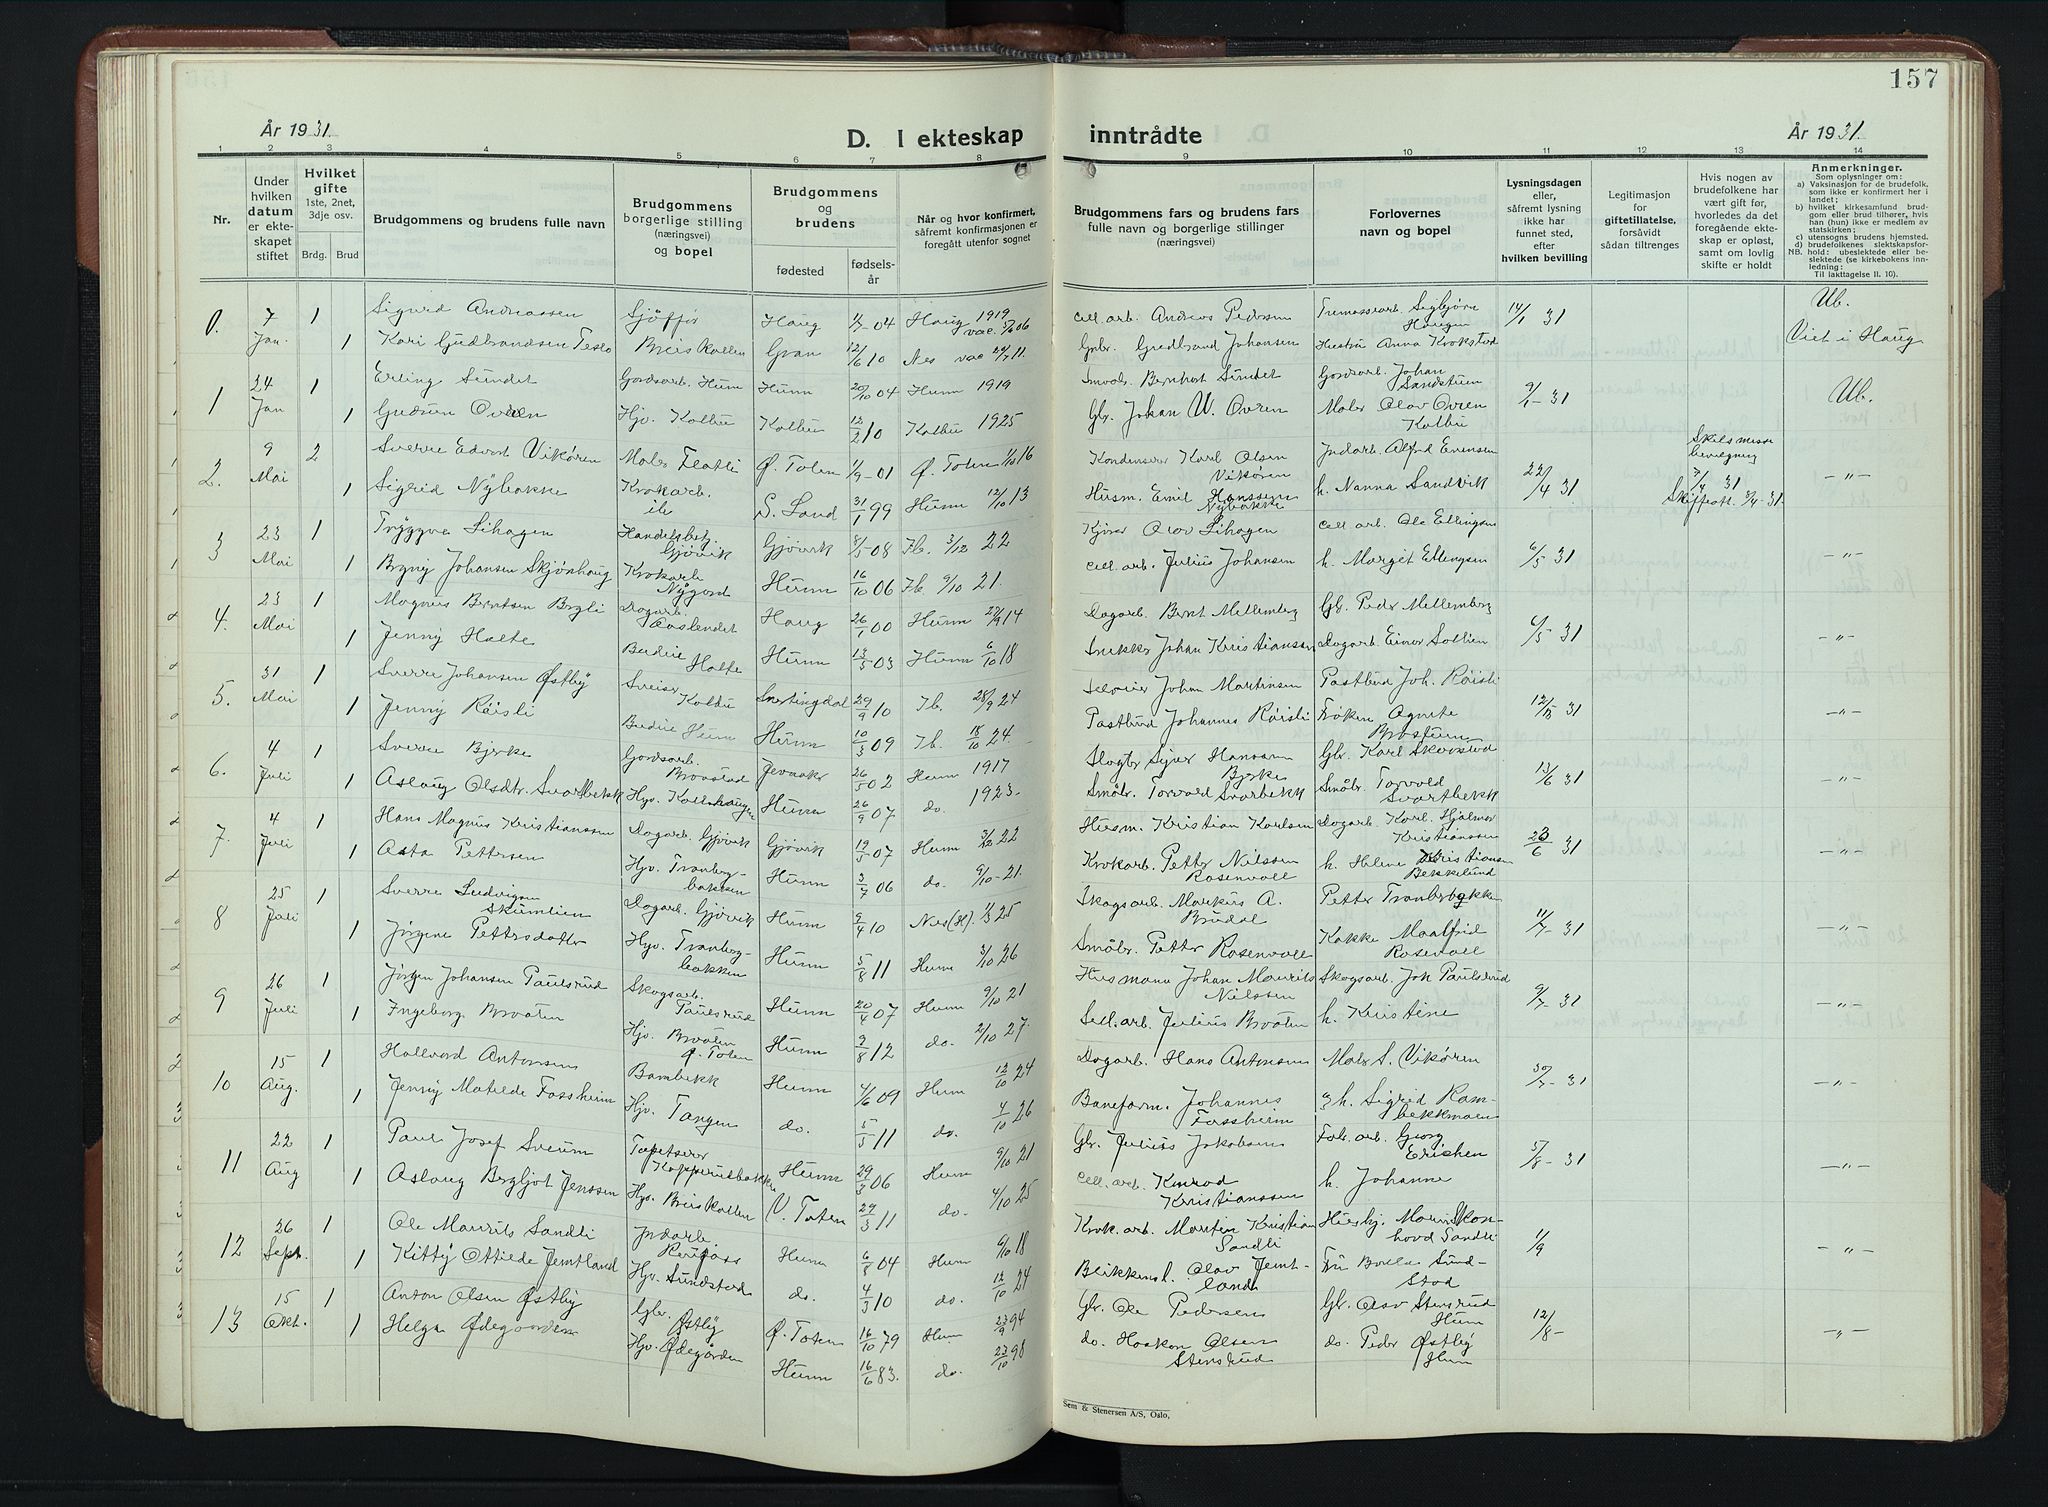 157
År 1931.
D. I ekteskap inntrådte
År 1931.
1 2 3 4 5 6 7 8 9 10 11 12 13 14
Nr.
Under hvilken datum er ekteskapet stiftet
Hvilket gifte 1ste, 2net, 3dje osv.
Brdg. Brud
Brudgommens og brudens fulle navn
Brudgommens borgerlige stilling (næringsvei) og bopel
Brudgommens og brudens
fødested
fødsels-år
Når og hvor konfirmert, såfremt konfirmasjonen er foregått utenfor sognet
Brudgommens fars og brudens fars fulle navn og borgerlige stillinger (næringsvei)
Forlovernes navn og bopel
Lysningsdagen eller, såfremt lysning ikke har funnet sted, efter hvilken bevilling
Legitimasjon for giftetillatelse, forsåvidt sådan tiltrenges
Hvis nogen av brudefolkene har vært gift før, hvorledes da det foregående ekteskap er opløst, samt om lovlig skifte er holdt
Anmerkninger.
Som oplysninger om:
a) Vaksinasjon for de brudefolk, som ikke er konfirmert her i landet;
b) hvilket kirkesamfund brudgom eller brud tilhører, hvis han (hun) ikke er medlem av statskirken;
c) utensogns brudens hjemsted.
d) brudefolkenes slektskapsforhold: ubeslektede eller beslektede (se kirkebokens innledning:
NB. Til iakttagelse II. 10).
0. 7 Jan. 1 Sigurd Andreassen Sjåffør Haug 1/7-04 Haug 1919 vac. 5/6 06 Cell. arb. Andreas Pedersen Tremassearb. Sigbjørn Haugen 14/1 31 Ub.
1 Kari Gudbrandsen Teslo Breiskallen Gran 12/6 10 Nes vac 20/7 11. Gbr. Gudbrand Johansen Hustru Anna Krokstad Viet i Haug
1 24 Jan 1 Erling Sundet Gardsarb. Hunn Hunn 20/10 04 Hunn 1919 Smabr. Bernhart Sundet Gardsarb. Johan Sandstuen 9/1-31 Ub.
1 Gudrun Ovren Hjv. Kolbu Kolbu 12/2 10 Kolbu 1925 Gbr. Johan W. Ovren Maler Olav Ovren Kolbu
2. 9 Mai 2 Sverre Edvart Vikøren Maler Flatli Ø. Toten 1/9-01 Ø. Toten 1/10 16 Kondensator Karl Olsen Vikøren Indarb. Alfred Evensen 22/4 31 Skilsmisse bevilgning 7/4 31 Skifteatt. 3/4-31. -"-
1 Sigrid Nybakke Krokarb. ile S. Land 31/1 99 Hunn 12/10 13 Husm. Emil Hanssen Nybakke h. Nanna Sandvik
3 23 Mai 1 Tryggve Lihagen Handelsbetj. Gjøvik Gjøvik 8/5-08 Ib. 3/12 22 Kjører Olav Lihagen Cell arb. Ole Ellingsen 6/5 31 -"-
1 Bryny Johansen Skjønhaug Krokarb Nygard Hunn 16/10 06 Ib. 9/10 21. Cell. arb. Julius Johansen h. Margit Ellingsen
4. 23 Mai 1 Magnus Berntsen Bryli Dagarb. Aaslendet Haug 26/1 00 Hunn 27/9 14 Dagarb. Bernt Mellemberg Gbr. Peder Mellemberg 6/5 31 -"-
1 Jenny Halte Budeie Halte Hunn 13/5 03 Hunn 6/10 18 Snekker Johan Kristiansen Dagarb. Einar Sollien
5. 31 Mai 1 Sverre Johansen Østby Sveiser Kolbu Snertingdal 29/9 10 Ib. 28/9 24 Johan Martinsen Postbud Joh. Røisli 12/5 31 -"-
1 Jenny Røisli Budeie Hunn Hunn 10/3 09 Ib. 18/10 24. Postbud Johannes Røisli Frøken Agnete Brostuen
6. 4 Juli 1 Sverre Bjerke Gardsarb. Bravstad Jevnaker 26/5 02 Hunn 1917 Slagter Syver Hanssen Bjerke Gbr. Karl Skovstad 13/6 31 -"-
1 Aslaug Olsdtr. Svartbekk Hjv. Kallhaugen Hunn 26/9 07 do. 1923. Småbr. Torvald Svartbekk Småbr. Torvald Svartbekk
7. 4 Juli 1 Hans Magnus Kristianssen Dagarb. Gjøvik Gjøvik 19/5-07 Hunn 3/12 22 Husm. Kristian Karlsen Dagarb. Karl Hjalmar Kristianssen 23/6 31 -"-
1 Asta Pettersen Hjv. Tranbergbakken Hunn 3/7 06 do. 9/10-21. Krokarb. Petter Nilssen Rosenvoll h. Helene Kristiansen Bekkelund
8 25 Juli 1 Sverre Ludvigsen Skumlien Dagarb. Gjøvik Hunn 9/4 10 Nes (H). 1/3 25 Skogsarb. Markus A. Brudal Petter Tranbergbakken 11/7-31 -"-
1 Jørgine Pettersdatter Hjv. Tranbergbakken Hunn 5/8 11 Hunn 3/10 26 Småbr. Petter Rosenvoll Kokke Maalfrid Rosenvoll
9 26 Juli 1 Jørgen Johansen Paulsrud Skogsarb. Paulsrud Hunn 20/4 07 Hunn 9/10 21 Husmann Johan Maurits Nilssen Skogsarb. Joh Paulsrud 9/7-31 -"-
1 Ingeborg Bråten Hjv. Bråten Ø. Toten Hunn 9/8 12 do. 2/10 27. Cell. arb. Julius Bråten h. Kristine
10 15 Aug. 1 Hallvard Antonsen Bambekk Hunn 4/6 09 Hunn 12/10 24 Dagarb. Hans Antonsen Maler S. Vikøren 30/7-31 -"-
1 Jenny Matilde Fossheim Hjv. Tangen do. 5/5 11 do. 4/10 26 Baneform. Johannes Fossheim h. Sigrid Rambekkmoen
11 22 Aug 1 Paul Josef Sveum Tapetserer Kopperudbakke Hunn 29/3 06 Hunn 9/10 21 Gbr. Julius Jakobsen Fabr. arb. Georg Erichsen 5/8-31 -"-
1 Aslaug Bergljot Jenssen Hjv. Breiskallen V. Toten 29/3 11 do. 4/10 25 Cell. arb. Konrad Kristianssen h. Johanne
12 26 Sept. 1 Ole Maurits Sandli Indarb Raufoss Hunn 6/8 04 Hunn 6/10 18 Krok. arb. Martin Kristian Sandli Husbj. Skonhovd Sandli 1/9 -"-
1 Kitty Ottilde Jemtland Hjv. Sundstad do. 4/3 10 do. 12/10 24 Blikkensl. Olav Jemtland Fru Sundstad
13 15 Okt. 1 Anton Olsen Østby Gbr. Østby Ø. Toten 16/10 79 Hunn 23/9 94 Gbr. Ole Pedersen Gbr. Olav Stensrud Hunn 12/8- -"-
1 Helga Ødegaarden Hjv. Ødegården Hunn 16/6 83. do. 23/10 98 do. Haakon Olsen Stensrud do. Peder Østby Hunn
Sem & Stenersen A/S, Oslo.